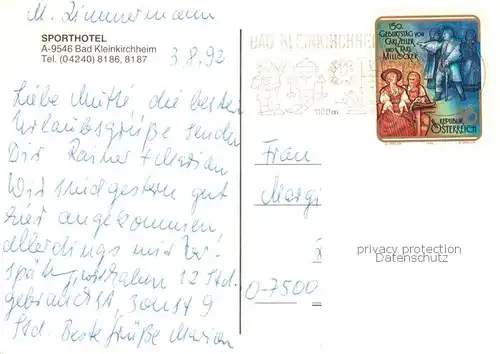 M. Zimmermann
SPORTHOTEL
A-9546 Bad Kleinkirchheim
Tel. (04240) 8186, 8187
3.8.92
Liebe Mutti, die besten
Urlaubsgrüße senden
Dir Rainer + Marian
Wir sind gestern gut
hier angekommen,
allerdings mit Ver-
spät., wir haben 12 Std.
gebraucht, sonst 9
Std. Beste Grüße Marian
BAD KLEINKIRCHHEIM
1100m
150.
GEBURTSTAG VON
CARL ZELLER
UND CARL
MILLÖCKER
REPUBLIK
ÖSTERREICH
Frau
Margi
O-7500
privacy protection
Datenschutz